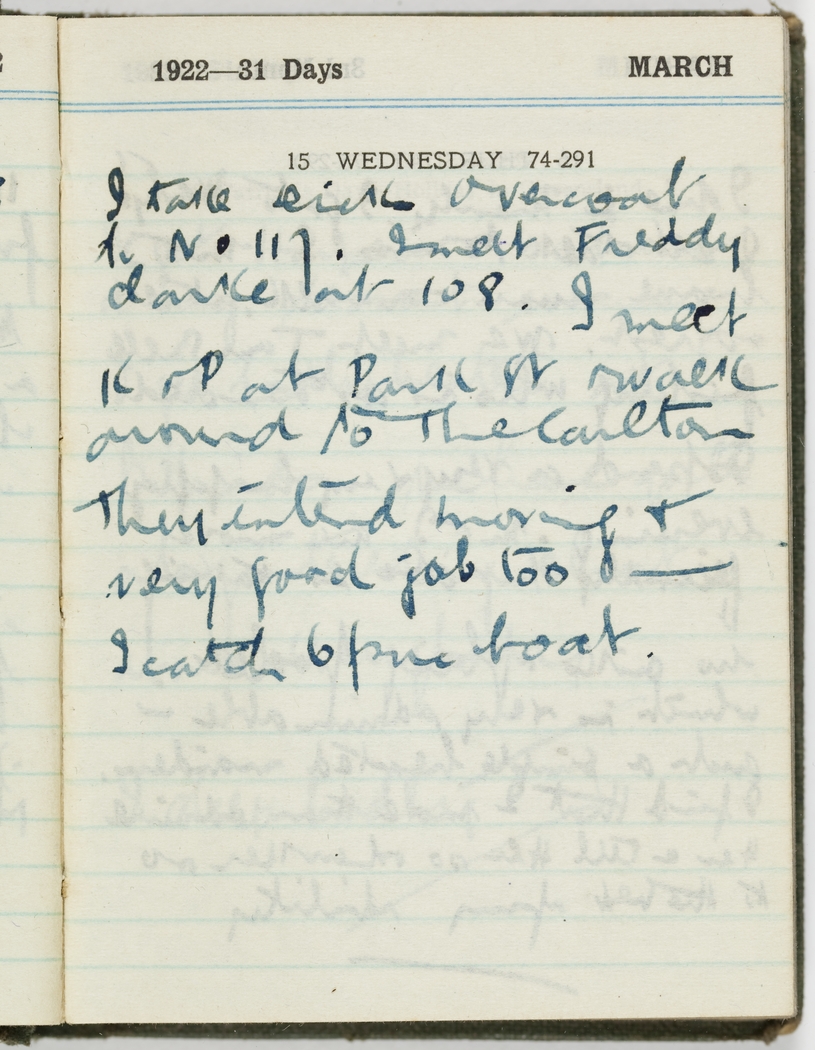 1922—31 Days MARCH
15 WEDNESDAY 74-291
I take Overcoat
to No 117. I meet Freddy
Clarke at 108. I meet
K & P at Park St & walk
around to The Carlton
They intend moving &
very good job too —
I catch 6 pm boat.